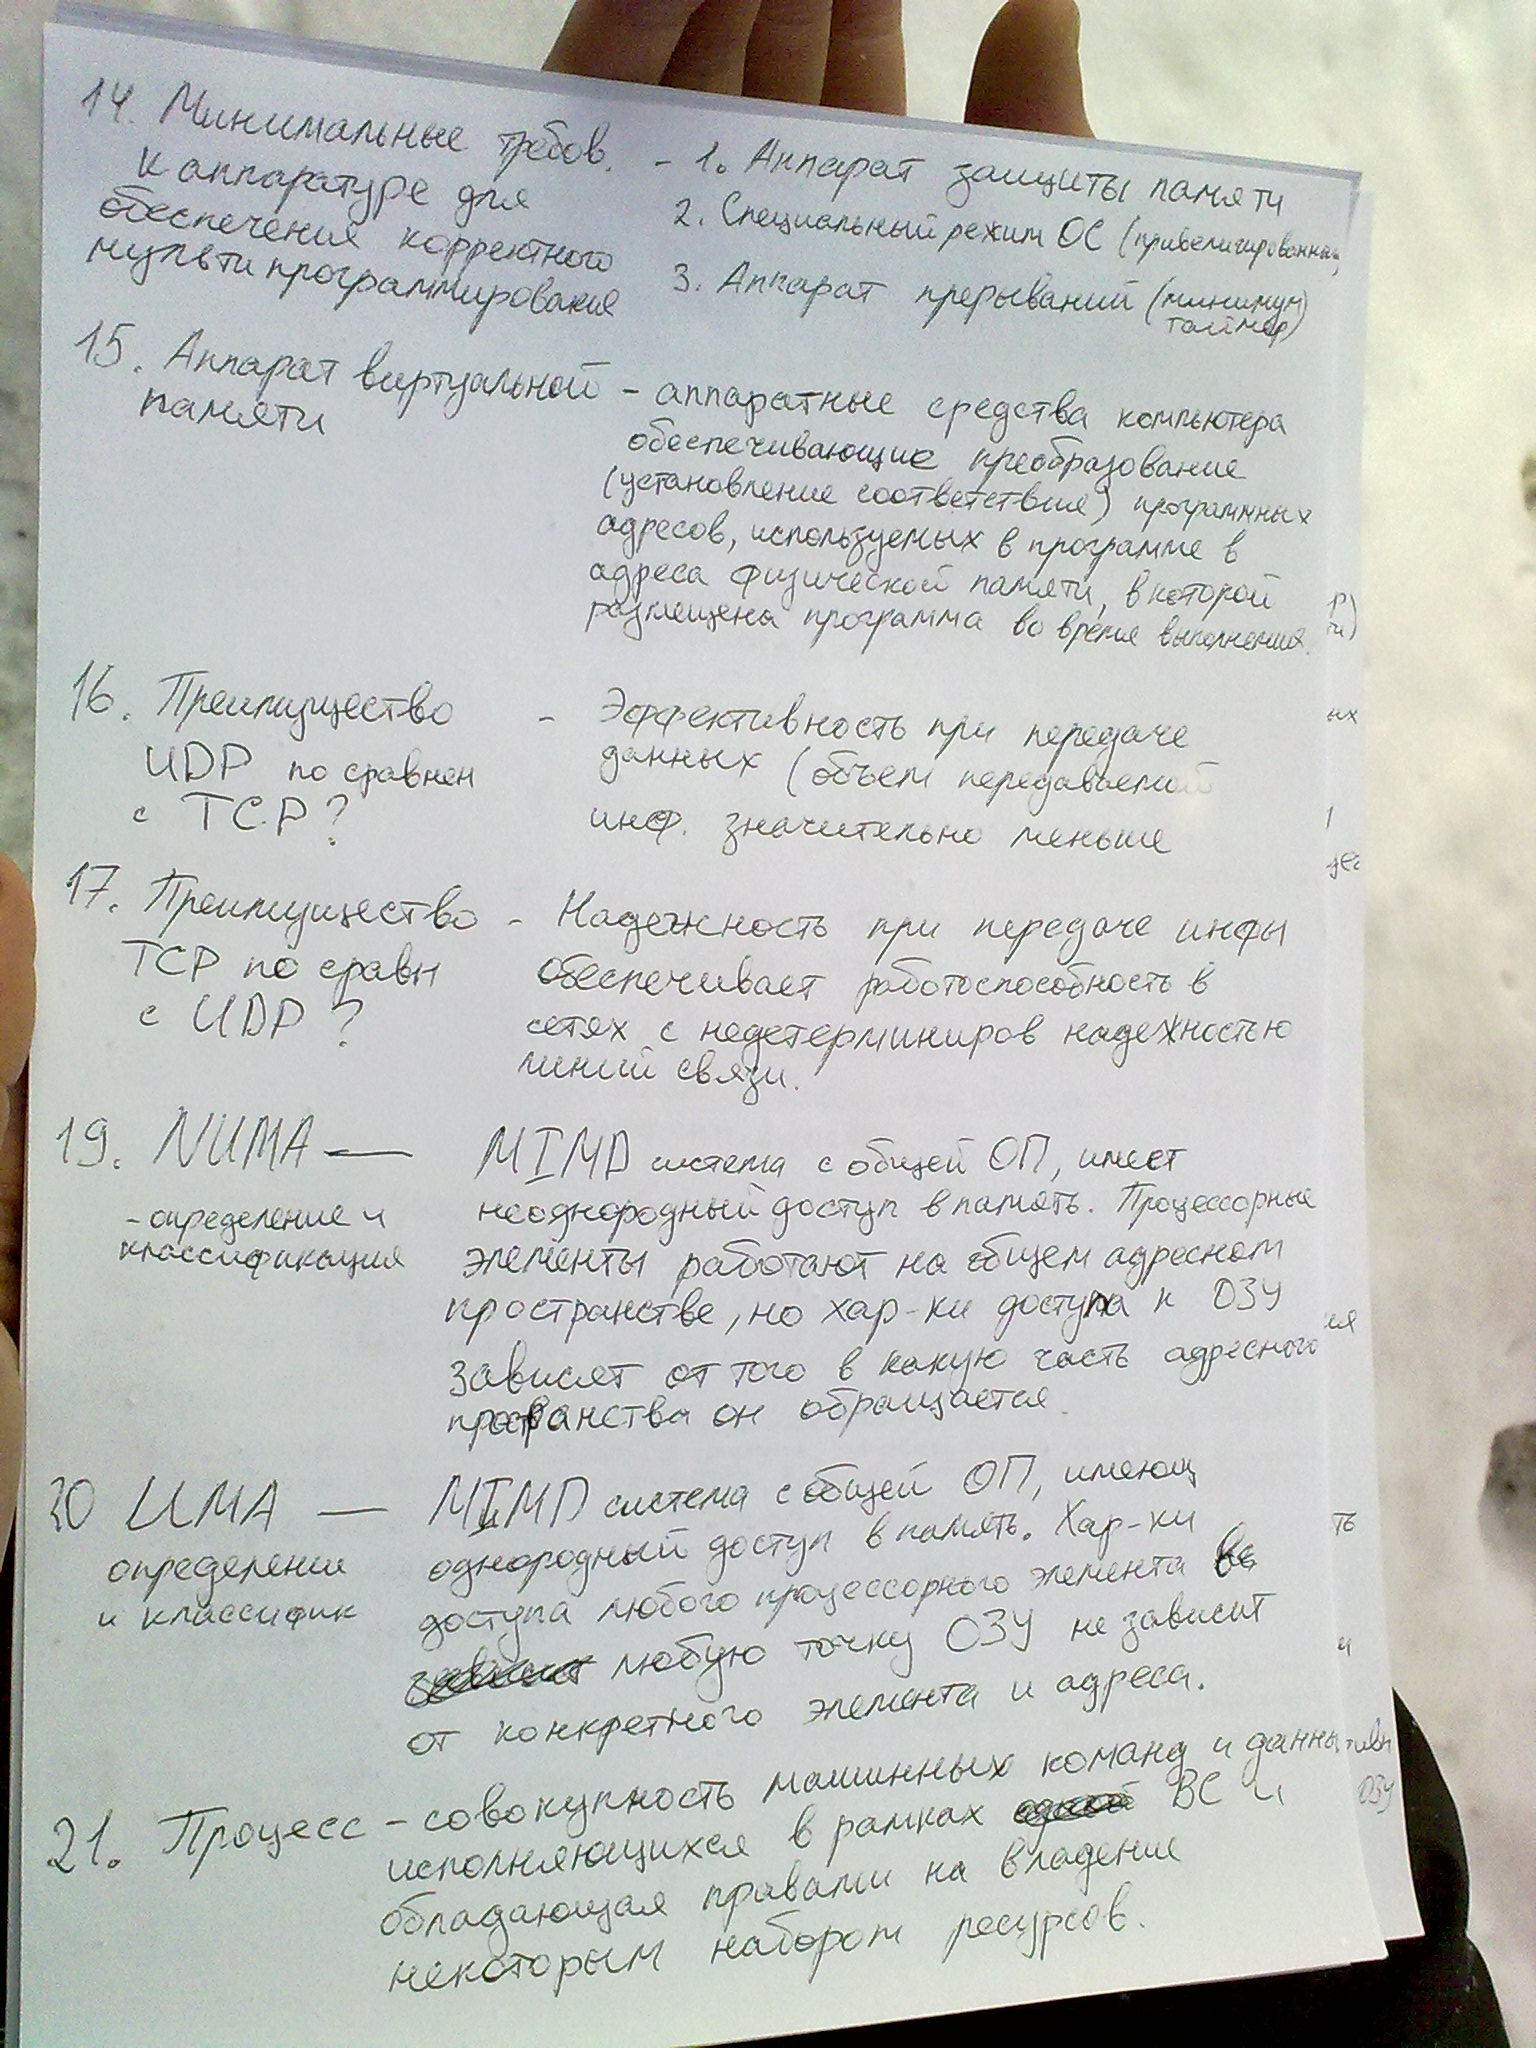 14. Минимальные требов.
к аппаратуре для
обеспечения корректного
мультипрограммирования
- 1. Аппарат защиты памяти
2. Специальный режим ОС (привелигированный)
3. Аппарат прерываний (минимум
таймер)
15. Аппарат виртуальной
памяти
- аппаратные средства компьютера
обеспечивающие преобразование
(установление соответствия) программных
адресов, используемых в программе в
адреса физической памяти, в которой
размещена программа во время выполнения.
16. Преимущество
UDP по сравнен
с TCP?
- Эффективность при передаче
данных (объем передаваемой
инф. значительно меньше
17. Преимущество
TCP по сравн
с UDP?
- Надежность при передаче инфы
обеспечивает работоспособность в
сетях с недетерминиров надежностью
линий связи.
19. NUMA —
- определение и
классификация
MIMD система с общей ОП, имеет
неоднородный доступ в память. Процессорные
элементы работают на общем адресном
пространстве, но хар-ки доступа к ОЗУ
зависят от того в какую часть адресного
пространства он обращается.
20 UMA —
определении
и классифик
MIMD система с общей ОП, имеющ
однородный доступ в память. Хар-ки
доступа любого процессорного элемента в
любую точку ОЗУ не зависит
от конкретного элемента и адреса.
21. Процесс - совокупность машинных команд и данны
исполняющихся в рамках ВС и
обладающая правами на владение
некоторым набором ресурсов.
ых
ия
ть
и
ОЗУ